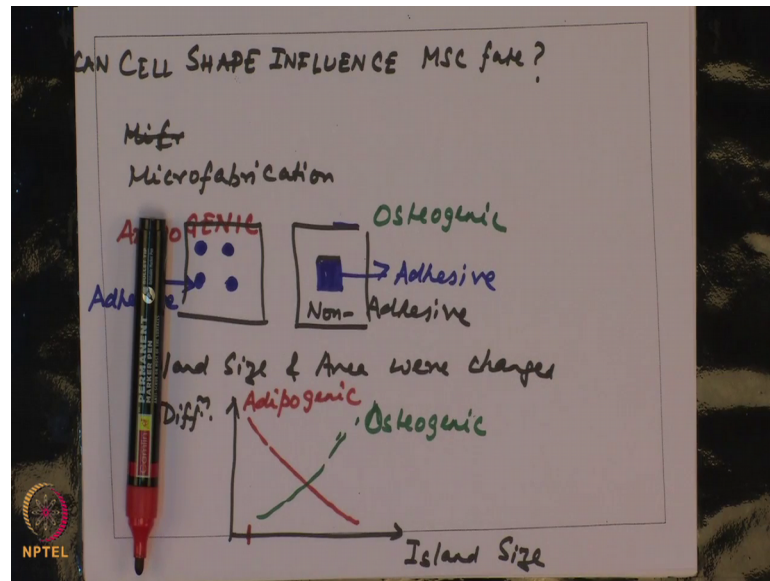 CAN CELL SHAPE INFLUENCE MSC fate?
Micr
Microfabrication
GENIC
Osteogenic
Adhesive
Non-Adhesive
land Size & Area were changed
Diffn.
Adipogenic
Osteogenic
Island Size
PERMANENT
MARKER PEN
Camlin
NPTEL